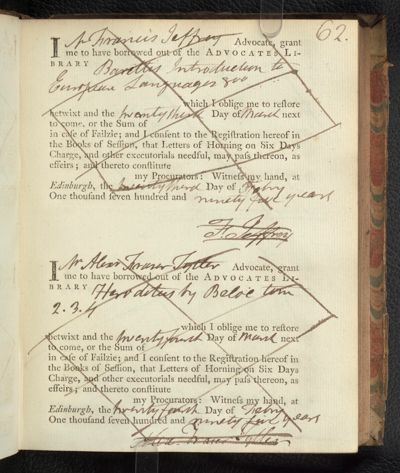 62.
I Mr Francis Jeffrey Advocate, grant
me to have borrowed out of the ADVOCATES LI-
BRARY Barettis Introduction to
European Languages 8vo
which I oblige me to reſtore
betwixt and the twenty third Day of March next
to come, or the Sum of
in caſe of Failzie; and I conſent to the Regiſtration hereof in
the Books of Seſſion, that Letters of Horning on Six Days
Charge, and other executorials needful, may paſs thereon, as
effeirs; and thereto conſtitute
my Procurators: Witneſs my hand, at
Edinburgh, the twenty third Day of Febry
One thouſand ſeven hundred and ninety five years
F. Jeffrey
I Mr Alexr Fraser Tytler Advocate, grant
me to have borrowed out of the ADVOCATES LI-
BRARY Herodotus by Beloe tom
2. 3. 4
which I oblige me to reſtore
betwixt and the twenty fourth Day of March next
to come, or the Sum of
in caſe of Failzie; and I conſent to the Regiſtration hereof in
the Books of Seſſion, that Letters of Horning on Six Days
Charge, and other executorials needful, may paſs thereon, as
effeirs; and thereto conſtitute
my Procurators: Witneſs my hand, at
Edinburgh, the twenty fourth Day of Febry
One thouſand ſeven hundred and ninety five years
Alexr Fraser Tytler